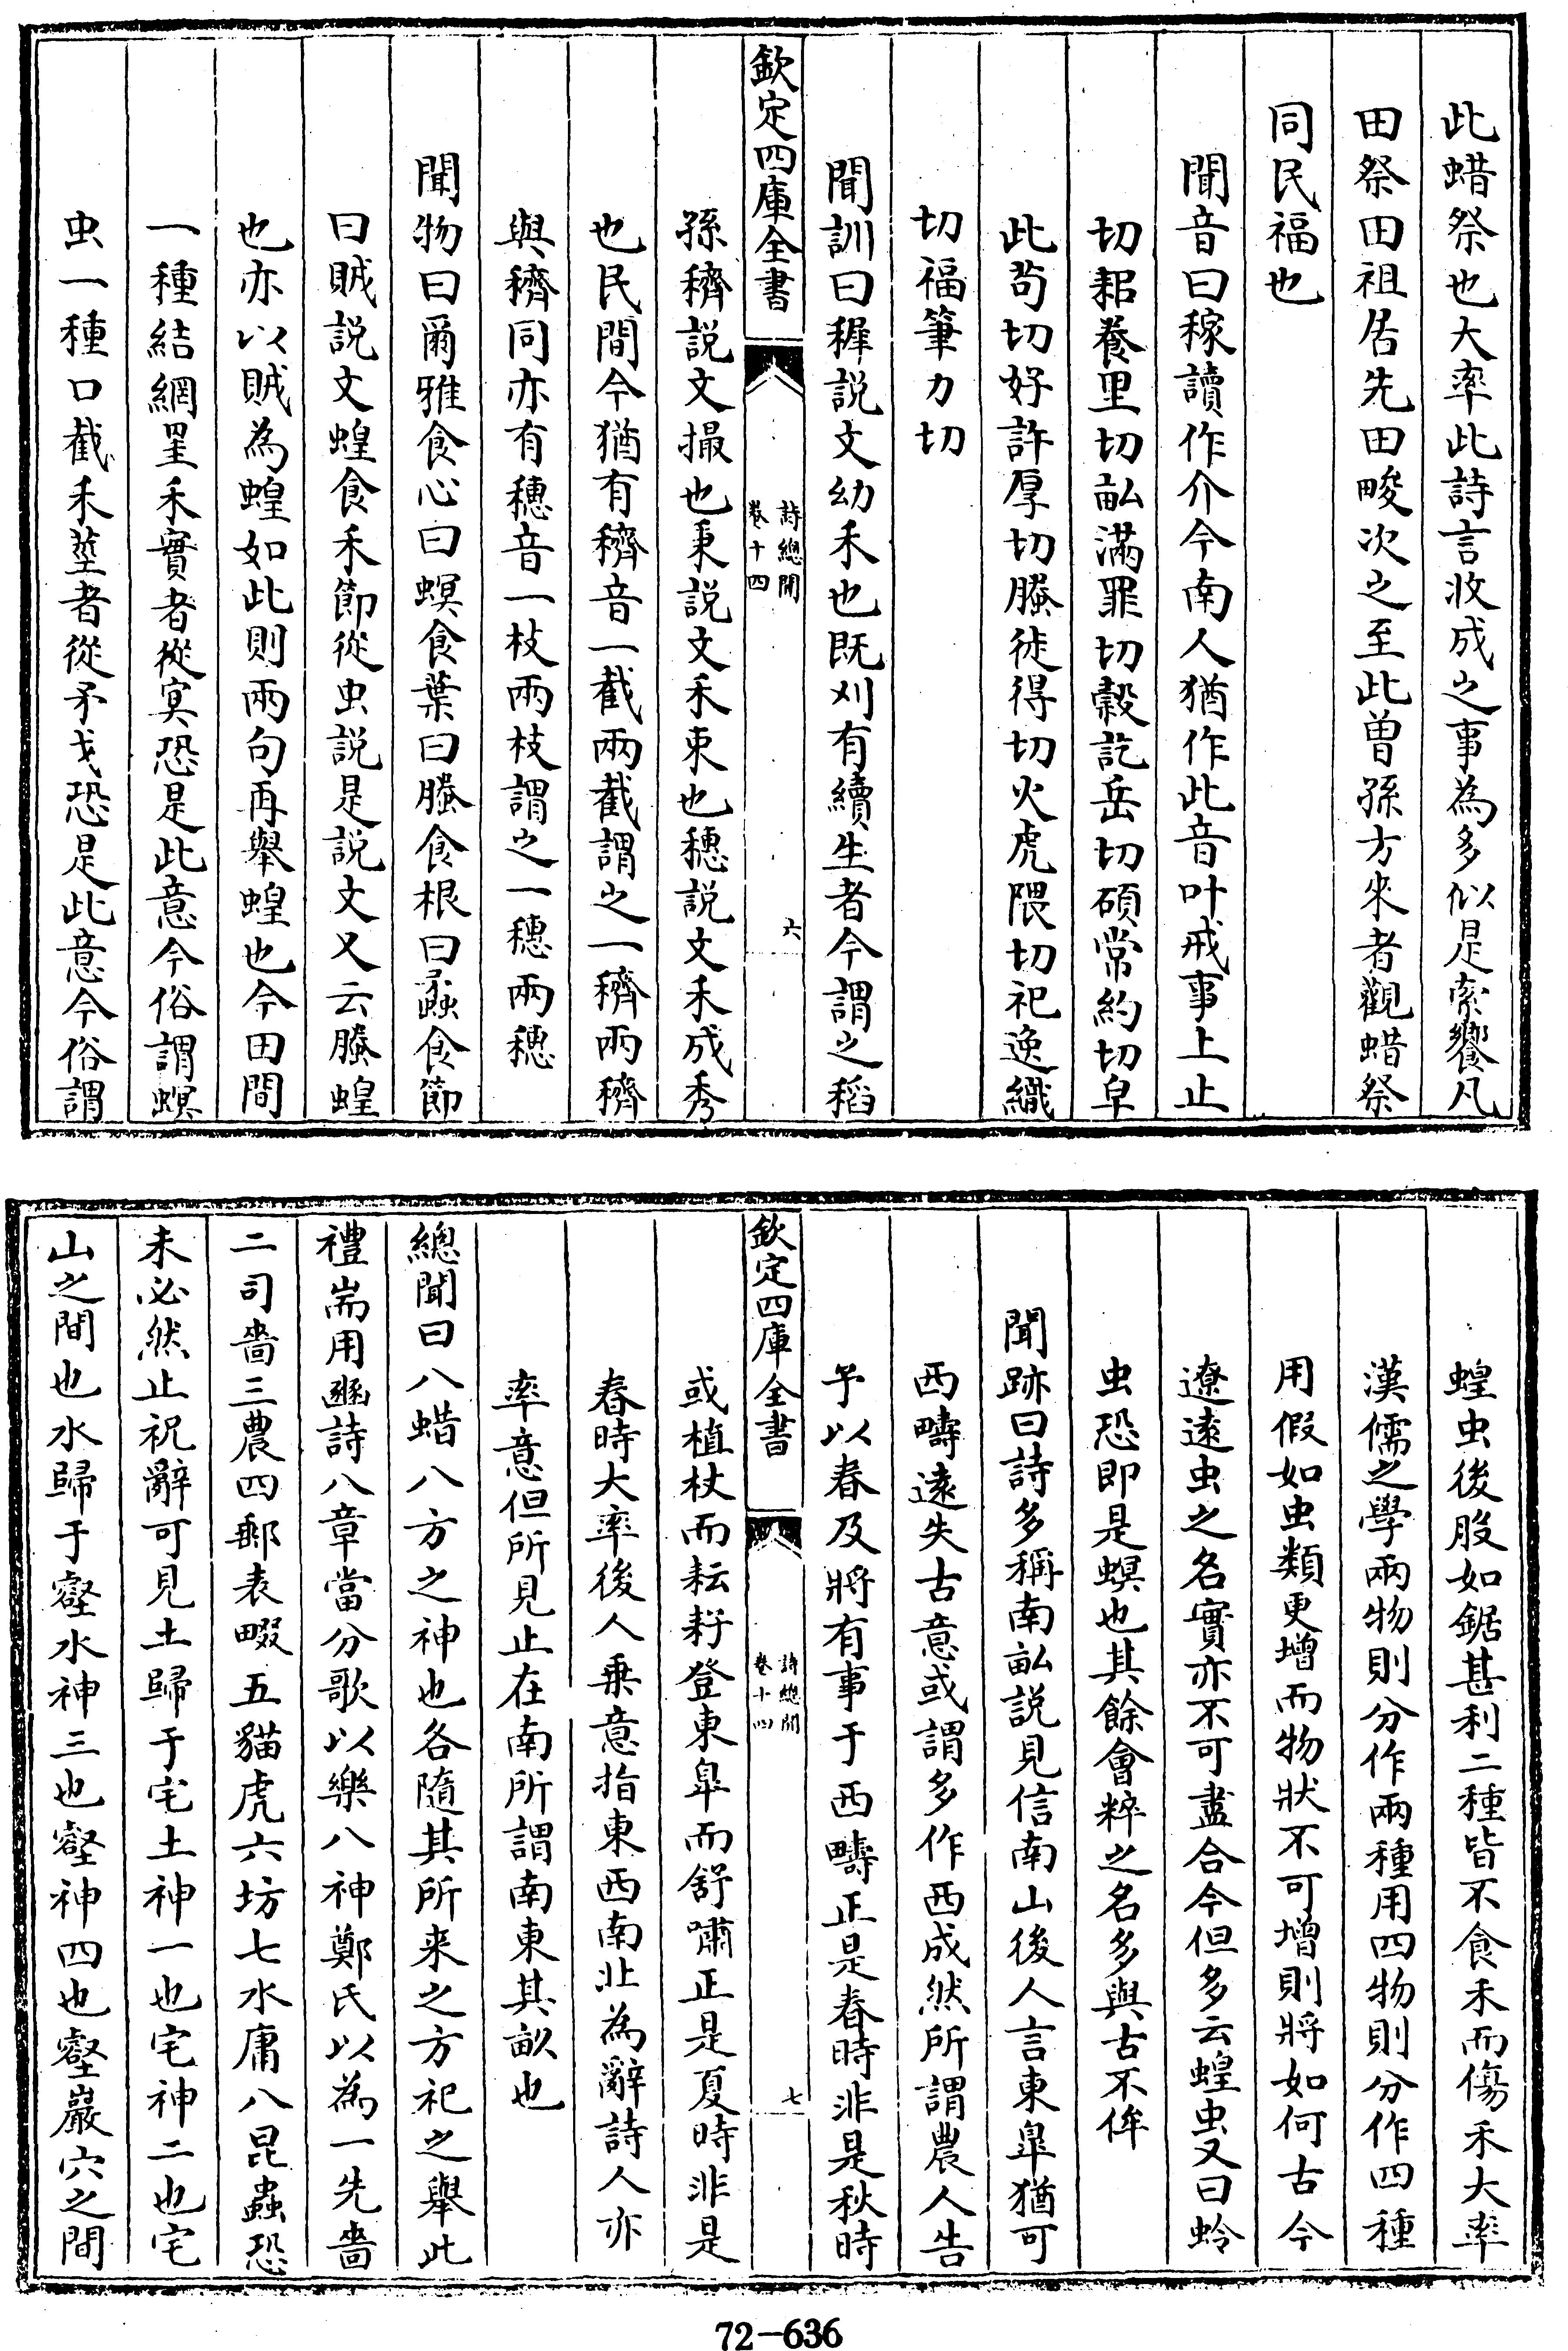 此蜡祭也大率此詩言收成之事為多似是索饗凡
田祭田祖居先田畯次之至此曽孫方來者觀蜡祭
同民福也
聞音曰稼讀作介今南人猶作此音叶戒事上止
切耜養里切畆滿罪切穀訖岳切碩常約切皁
此茍切好許厚切螣徒得切火虎隈切祀逸織
切福筆力切
聞訓曰穉說文幼禾也既刈有續生者今謂之稻
欽定四庫全書
詩總聞
卷十四
六
孫穧說文撮也秉說文禾束也穗說文禾成秀
也民間今猶有穧音一截兩截謂之一穧兩穧
與穧同亦有穗音一枝兩枝謂之一穗兩穗
聞物曰爾雅食心曰螟食葉曰螣食根曰蟊食節
曰賊說文蝗食禾節從虫說是說文又云螣蝗
也亦以賊為蝗如此則兩句再舉蝗也今田間
一種結網罣禾實者從冥恐是此意今俗謂螟
虫一種口截禾莖者從矛戈恐是此意今俗謂
蝗虫後股如鋸甚利二種皆不食禾而傷禾大率
漢儒之學兩物則分作兩種用四物則分作四種
用假如虫類更增而物狀不可增則將如何古今
遼逺虫之名實亦不可盡合今但多云蝗虫又曰蛉
虫恐即是螟也其餘會粹之名多與古不侔
聞跡曰詩多稱南畆說見信南山後人言東臯猶可
西疇逺失古意或謂多作西成然所謂農人告
予以春及將有事于西疇正是春時非是秋時
欽定四庫全書
詩總聞
卷十四
七
或植杖而耘耔登東臯而舒嘯正是夏時非是
春時大率後人乗意指東西南北為辭詩人亦
率意但所見止在南所謂南東其畝也
總聞曰八蜡八方之神也各隨其所来之方祀之舉此
禮耑用豳詩八章當分歌以樂八神鄭氏以為一先嗇
二司嗇三農四郵表畷五貓虎六坊七水庸八昆蟲恐
未必然止祝辭可見土歸于宅土神一也宅神二也宅
山之間也水歸于壑水神三也壑神四也壑巖穴之間
72-636